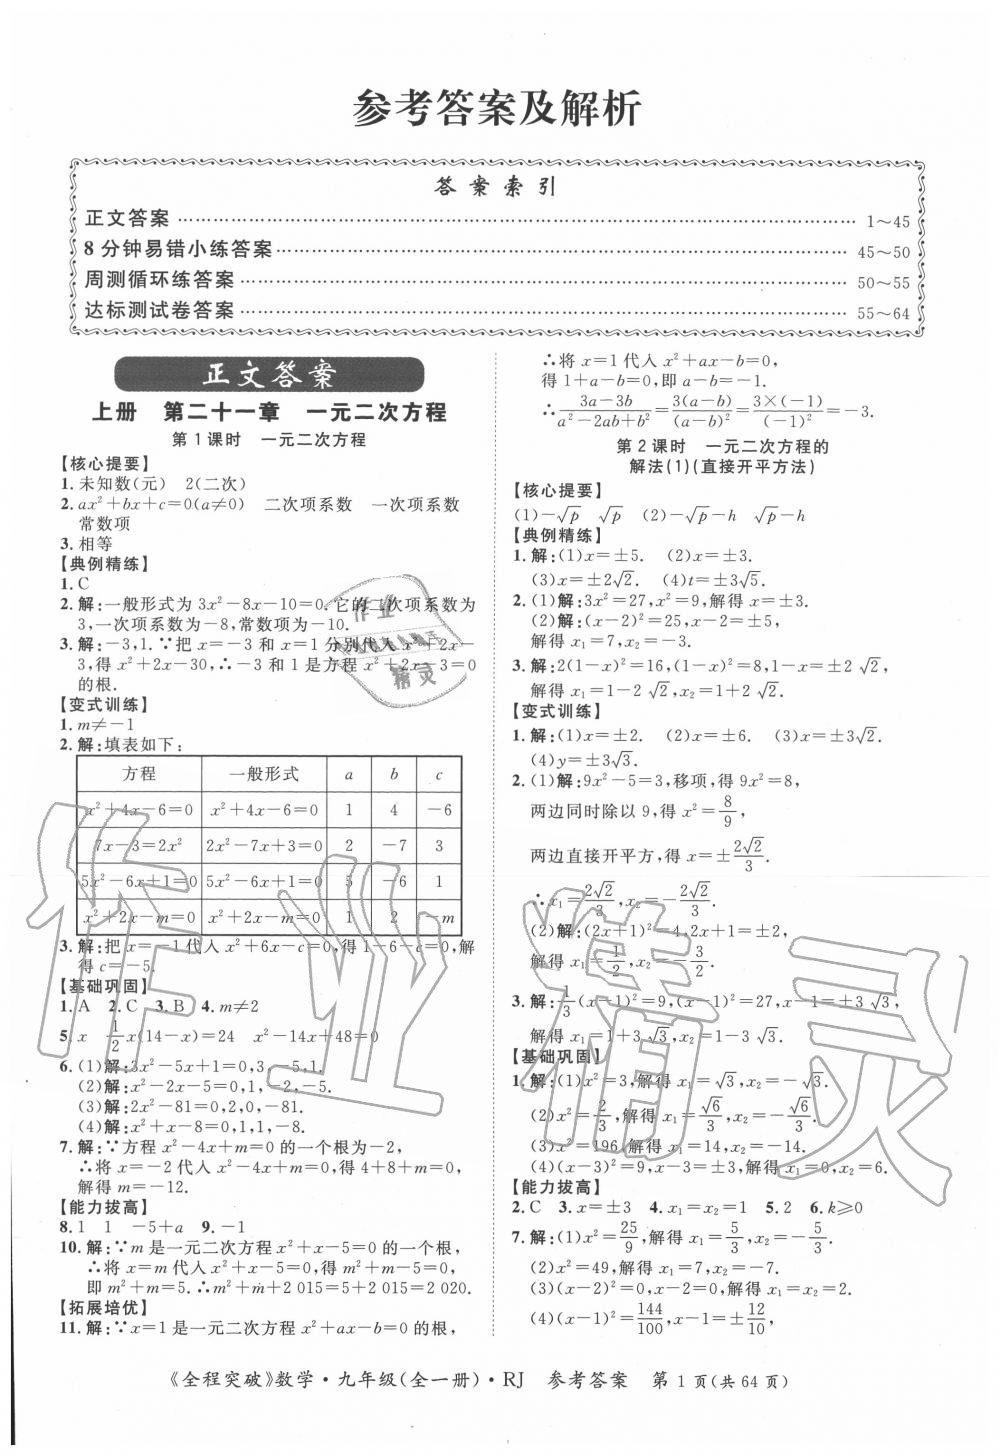 参考答案及解析
答案索引
正文答案 …… 1～45
8分钟易错小练答案 …… 45～50
周测循环练答案 …… 50～55
达标测试卷答案 …… 55～64
正文答案
上册 第二十一章 一元二次方程
第1课时 一元二次方程
【核心提要】
1.未知数(元) 2(二次)
2.ax²+bx+c=0(a≠0) 二次项系数 一次项系数
常数项
3.相等
【典例精练】
1.C
2.解:一般形式为3x²-8x-10=0.它的二次项系数为
3,一次项系数为-8,常数项为-10.
3.解:-3,1.∵把x=-3和x=1分别代入x²+2x-
3,得x²+2x-30,∴-3和1是方程x²+2x-3=0
的根.
【变式训练】
1.m≠-1
2.解:填表如下:
方程 一般形式 a b c
x²+4x-6=0 x²+4x-6=0 1 4 -6
7x-3=2x² 2x²-7x+3=0 2 -7 3
5x²-6x+1=0 5x²-6x+1=0 5 -6 1
x²+2x-m=0 x²+2x-m=0 1 2 -m
3.解:把x=-1代入x²+6x-c=0,得1-6-c=0,解
得c=-5.
【基础巩固】
1.A 2.C 3.B 4.m≠2
5.x 1/2x(14-x)=24 x²-14x+48=0
6.(1)解:3x²-5x+1=0,3,-5,1.
(2)解:x²-2x-5=0,1,-2,-5.
(3)解:2x²-81=0,2,0,-81.
(4)解:x²+x-8=0,1,1,-8.
7.解:∵方程x²-4x+m=0的一个根为-2,
∴将x=-2代入x²-4x+m=0,得4+8+m=0,
解得m=-12.
【能力拔高】
8.1 1 -5+a 9.-1
10.解:∵m是一元二次方程x²+x-5=0的一个根,
∴将x=m代入x²+x-5=0,得m²+m-5=0,
即m²+m=5.∴m²+m+2 015=5+2 015=2 020.
【拓展培优】
11.解:∵x=1是一元二次方程x²+ax-b=0的根,
∴将x=1代入x²+ax-b=0,
得1+a-b=0,即a-b=-1.
∴(3a-3b)/(a²-2ab+b²)=3(a-b)/(a-b)²=3×(-1)/(-1)²=-3.
第2课时 一元二次方程的
解法(1)(直接开平方法)
【核心提要】
(1)-√p √p (2)-√p-h √p-h
【典例精练】
1.解:(1)x=±5. (2)x=±3.
(3)x=±2√2. (4)t=±3√5.
2.(1)解:3x²=27,x²=9,解得x=±3.
(2)解:(x-2)²=25,x-2=±5,
解得x₁=7,x₂=-3.
3.解:2(1-x)²=16,(1-x)²=8,1-x=±2√2,
解得x₁=1-2√2,x₂=1+2√2.
【变式训练】
1.解:(1)x=±2. (2)x=±6. (3)x=±3√2.
(4)y=±3√3.
2.(1)解:9x²-5=3,移项,得9x²=8,
两边同时除以9,得x²=8/9,
两边直接开平方,得x=±2√2/3.
∴x₁=2√2/3,x₂=-2√2/3.
(2)解:(2x+1)²=4,2x+1=±2,
解得x₁=1/2,x₂=-3/2.
3.解:1/3(x-1)²=9,(x-1)²=27,x-1=±3√3,
解得x₁=1+3√3,x₂=1-3√3.
【基础巩固】
1.解:(1)x²=3,解得x₁=√3,x₂=-√3.
(2)x²=2/3,解得x₁=√6/3,x₂=-√6/3.
(3)x²=196,解得x₁=14,x₂=-14.
(4)(x-3)²=9,x-3=±3,解得x₁=0,x₂=6.
【能力拔高】
2.C 3.x=±3 4.x₁=x₂=1 5.2 6.k≥0
7.解:(1)x²=25/9,解得x₁=5/3,x₂=-5/3.
(2)x²=49,解得x₁=7,x₂=-7.
(3)(x-2)²=0,x-2=0,解得x₁=x₂=2.
(4)(x-1)²=144/100,x-1=±12/10,
《全程突破》数学·九年级(全一册)·RJ 参考答案 第1页(共64页)
作业精灵